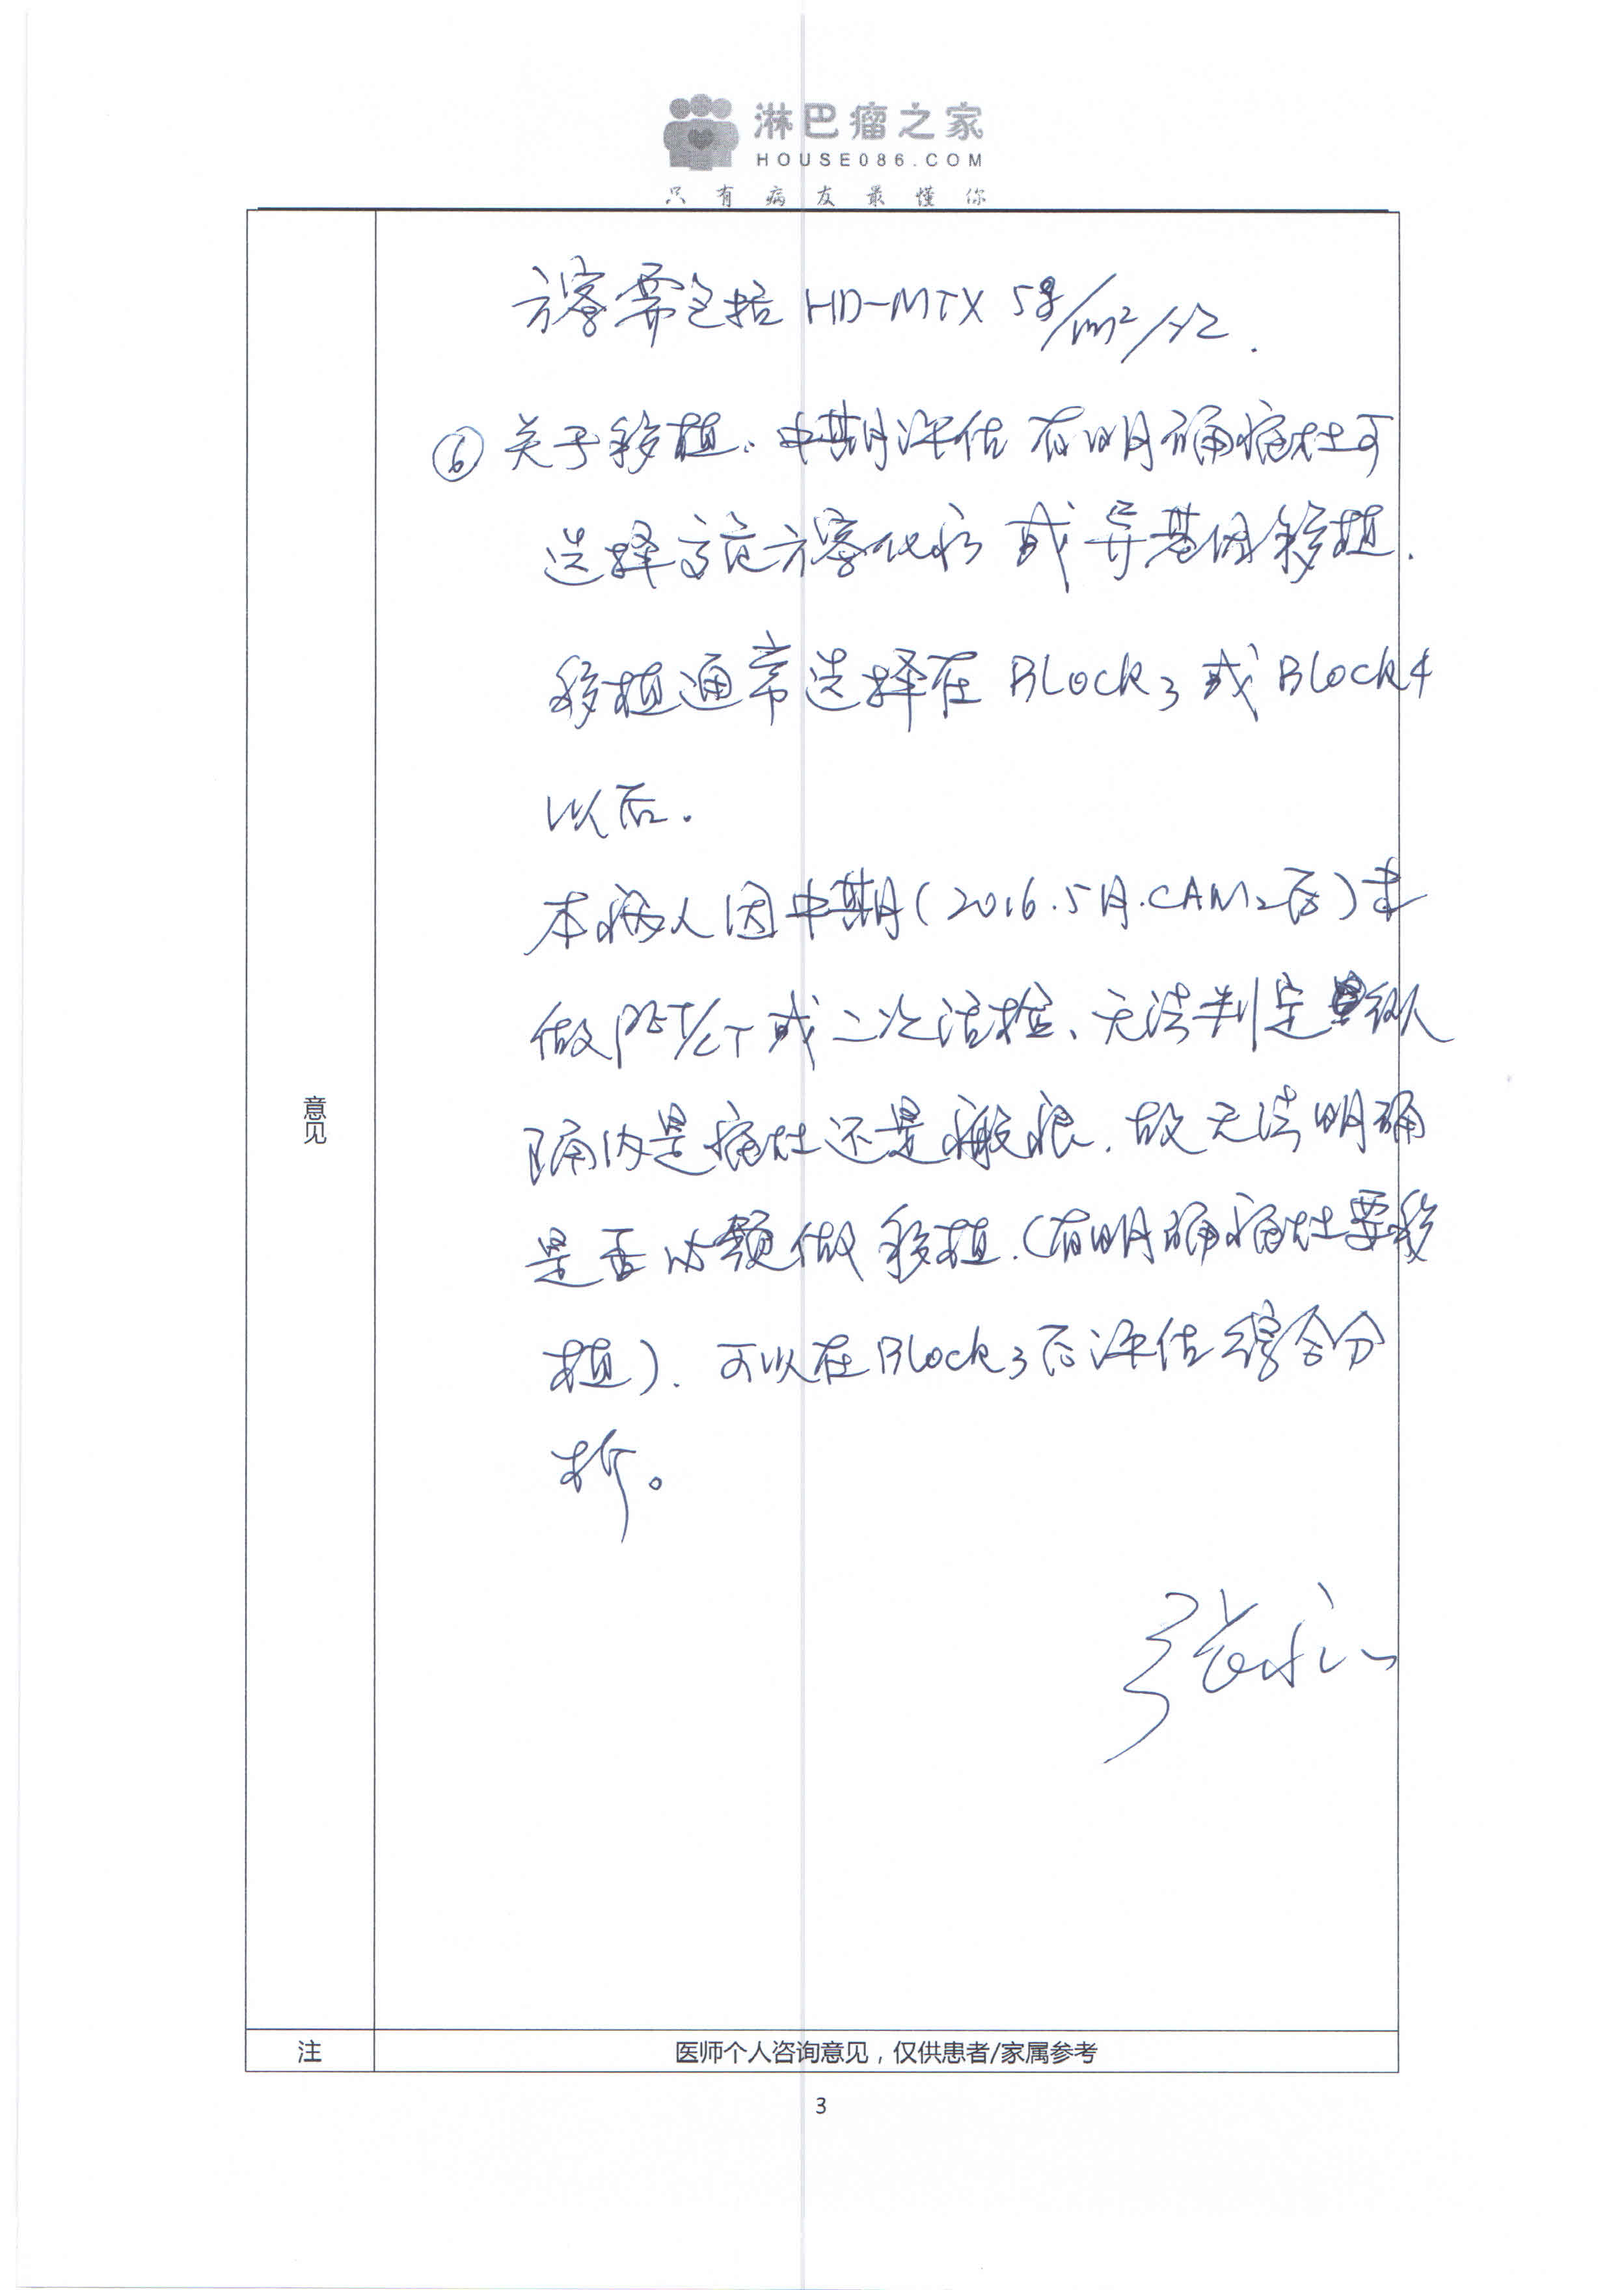 淋巴瘤之家
HOUSE086.COM
只有病友最懂你
方案需包括 HD-MTX 5g/m²/次.
⑥ 关于移植: 中期评估有明确病灶可
选择高危方案化疗或异基因移植.
移植通常选择在 Block3 或 Block4
以后.
本病人因中期(2016.5月.CAM2后)未
做PET/CT或二次活检、无法判定纵
隔内是病灶还是瘢痕. 故无法明确
是否必须做移植.(有明确病灶要移
植). 可以在Block3后评估综合分
析。
张永
意见
注
医师个人咨询意见，仅供患者/家属参考
3